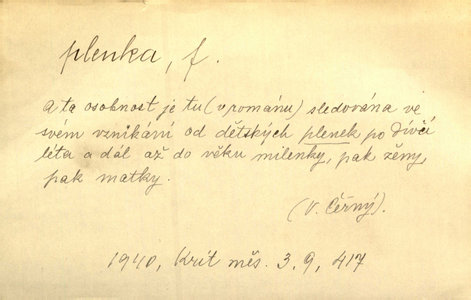 plenka, f.
A ta osobnost je tu (v románu) sledována ve
svém vznikání od dětských plenek po dívčí
léta a dál až do věku milenky, pak ženy,
pak matky.
(V. Černý).
1940, Krit měs. 3, 9, 417